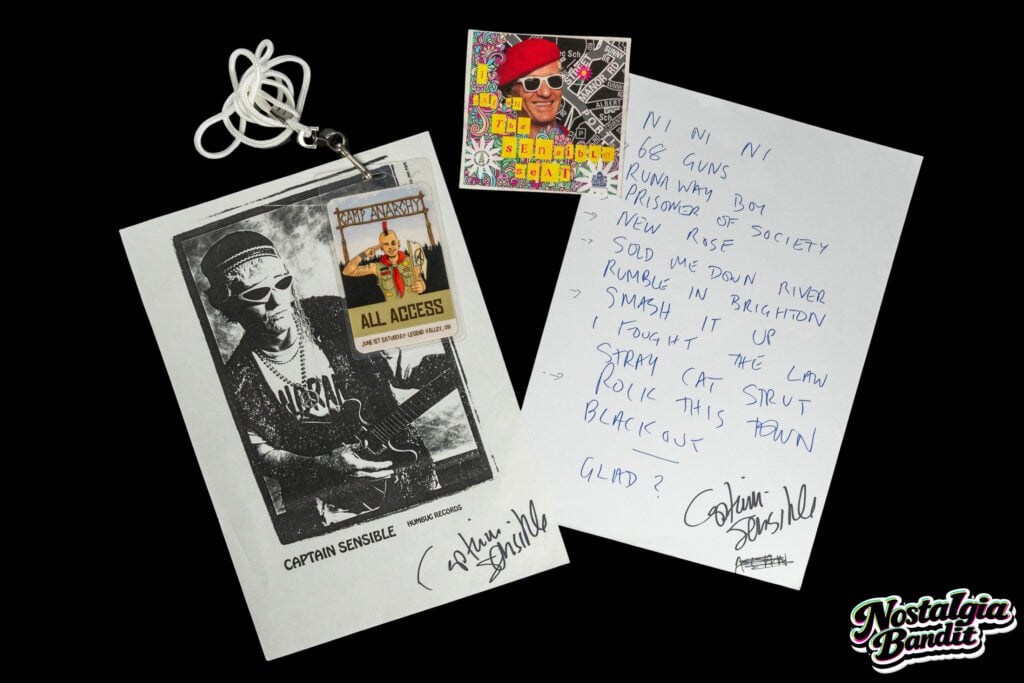 CAMP ANARCHY
ALL ACCESS
JUNE 1ST SATURDAY · LEGEND VALLEY, OH
CAPTAIN SENSIBLE
HUMBUG RECORDS
Captain
Sensible
I
SAT ON
The
sEnsibLe
seAT
STREET
MANOR RD
ALBERT
Sch
SUNNY
P
NI NI NI
68 GUNS
RUNAWAY BOY
PRISONER OF SOCIETY
→ NEW ROSE
→ SOLD ME DOWN RIVER
RUMBLE IN BRIGHTON
→ SMASH IT UP
I FOUGHT THE LAW
STRAY CAT STRUT
→ ROCK THIS TOWN
BLACKOUT
GLAD ?
Captain
Sensible
Nostalgia
Bandit